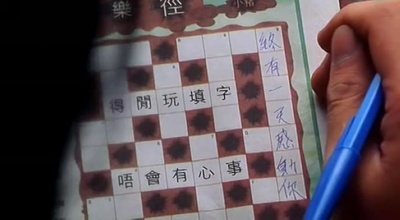 樂徑
得閒玩填字
唔會有心事
終有一天感動你